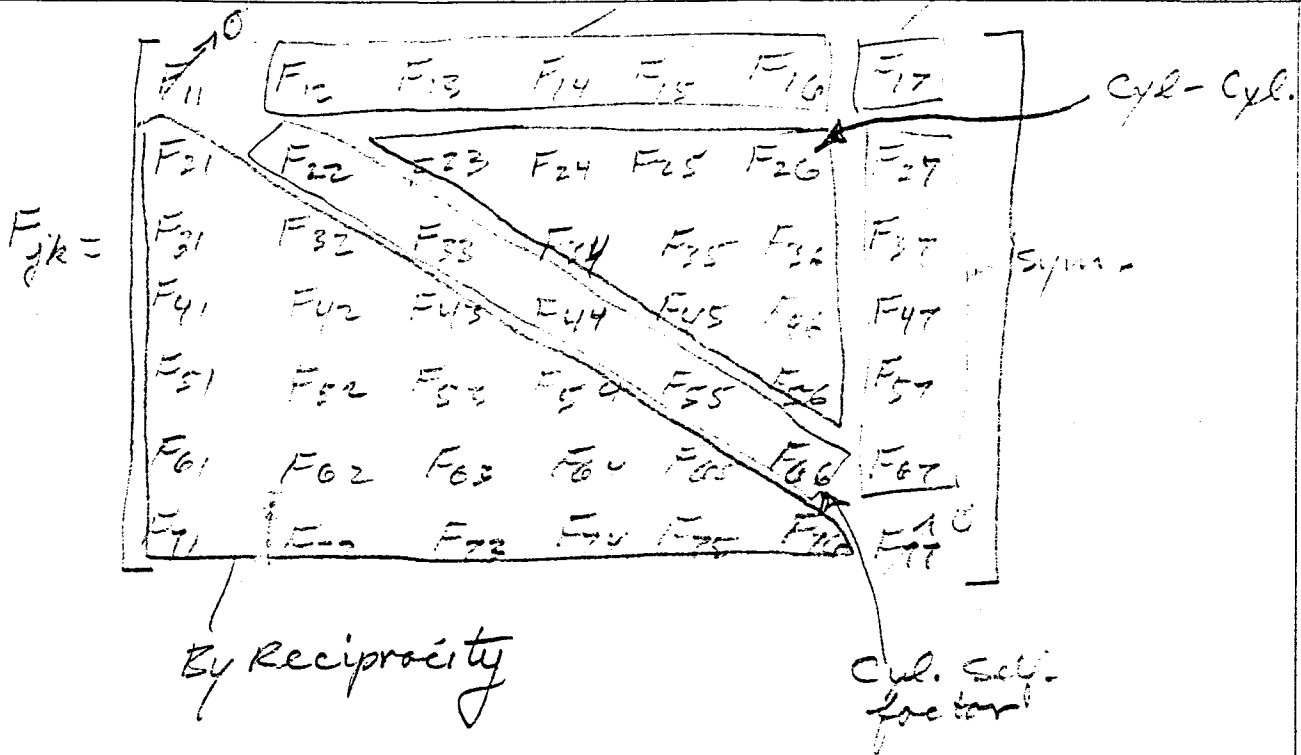 0
F11 F12 F13 F14 F15 F16 F17
Cyl - Cyl.
F21 F22 F23 F24 F25 F26 F27
Fjk = F31 F32 F33 F34 F35 F36 F37 sym.
F41 F42 F43 F44 F45 F46 F47
F51 F52 F53 F54 F55 F56 F57
F61 F62 F63 F64 F65 F66 F67
0
F71 F72 F73 F74 F75 F76 F77
By Reciprocity
Cyl. Self-
factor